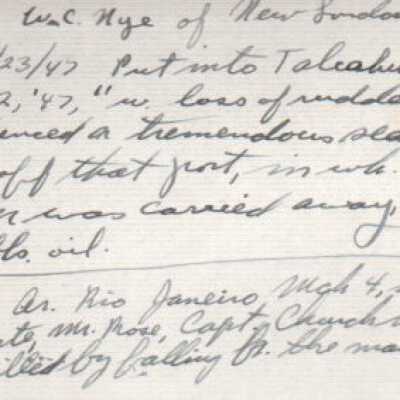 W.C. Nye of New London
/23/47 Put into Talcahu
2, '47, "w. loss of rudde
enced a tremendous sea
off that port, in wh.
was carried away,
bls. oil.
Ar. Rio Janeiro, Mch 4,
ate, Mr. Rose, Capt. Church
illed by falling fr. the ma